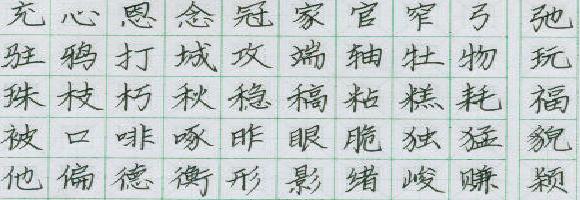 充心恩念冠家官窄弓弛
驻鸦打城攻端轴牡物玩
珠枝朽秋稳稿粘糕耗福
被口啡啄昨眼脆独猛貌
他偏德衡形影绪峻赚颖